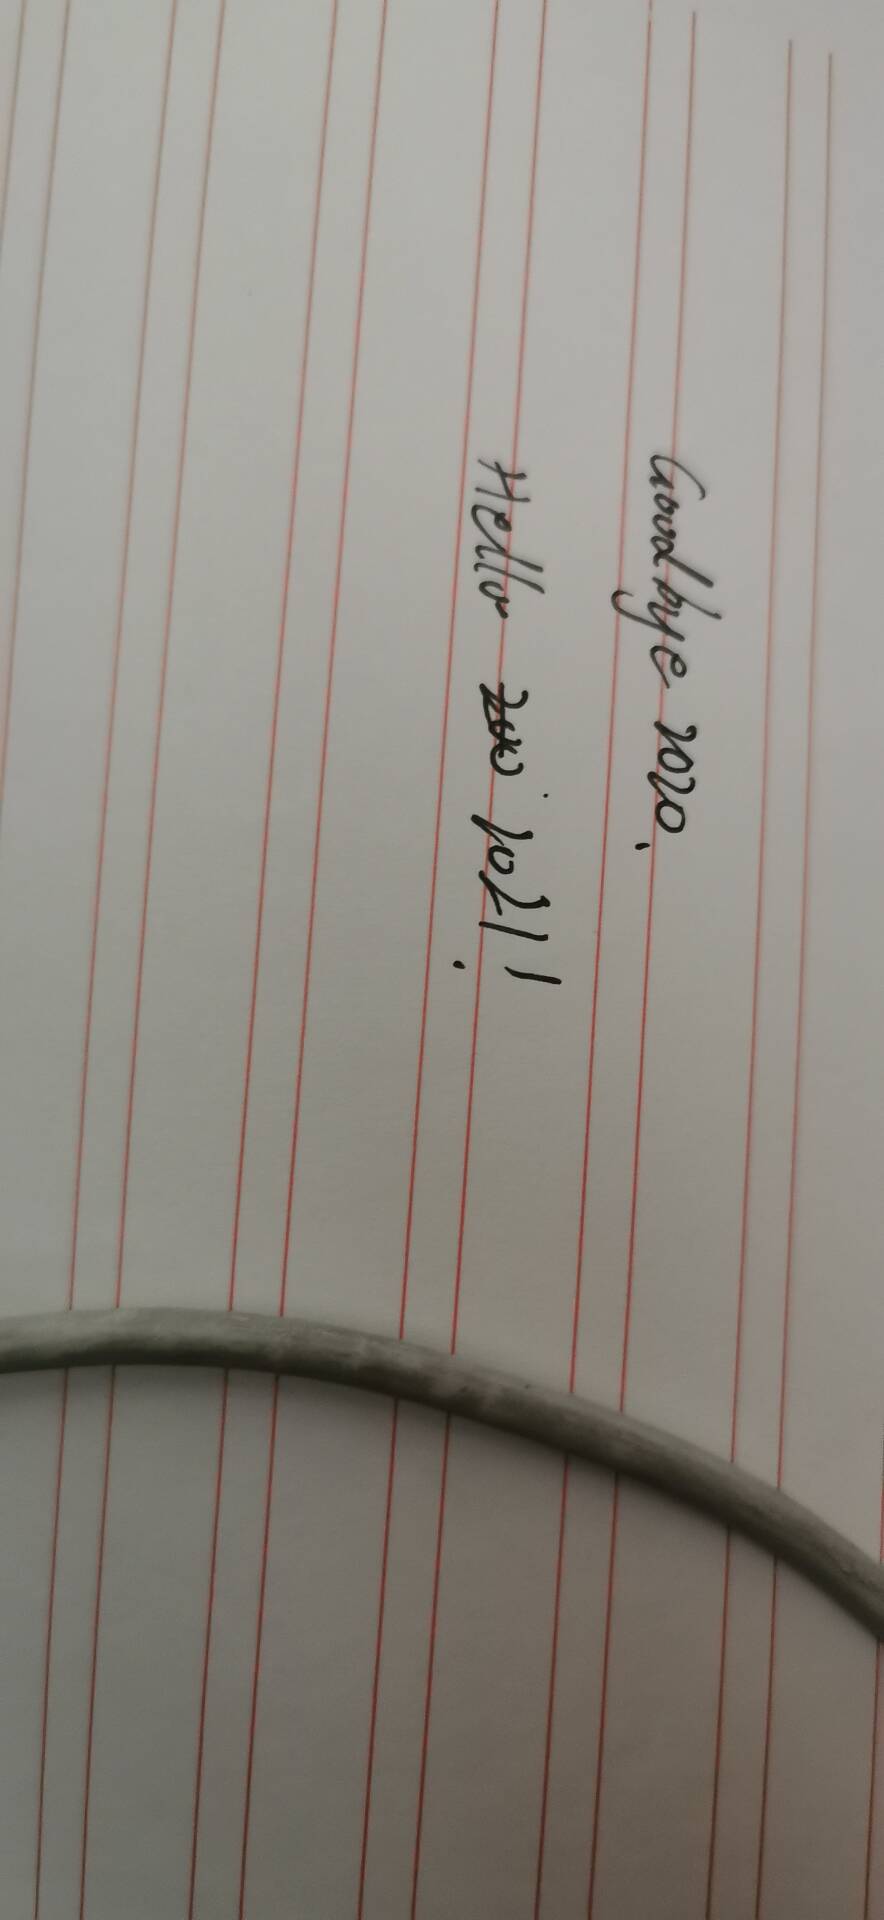 Goodbye 2020.
Hello 2021!